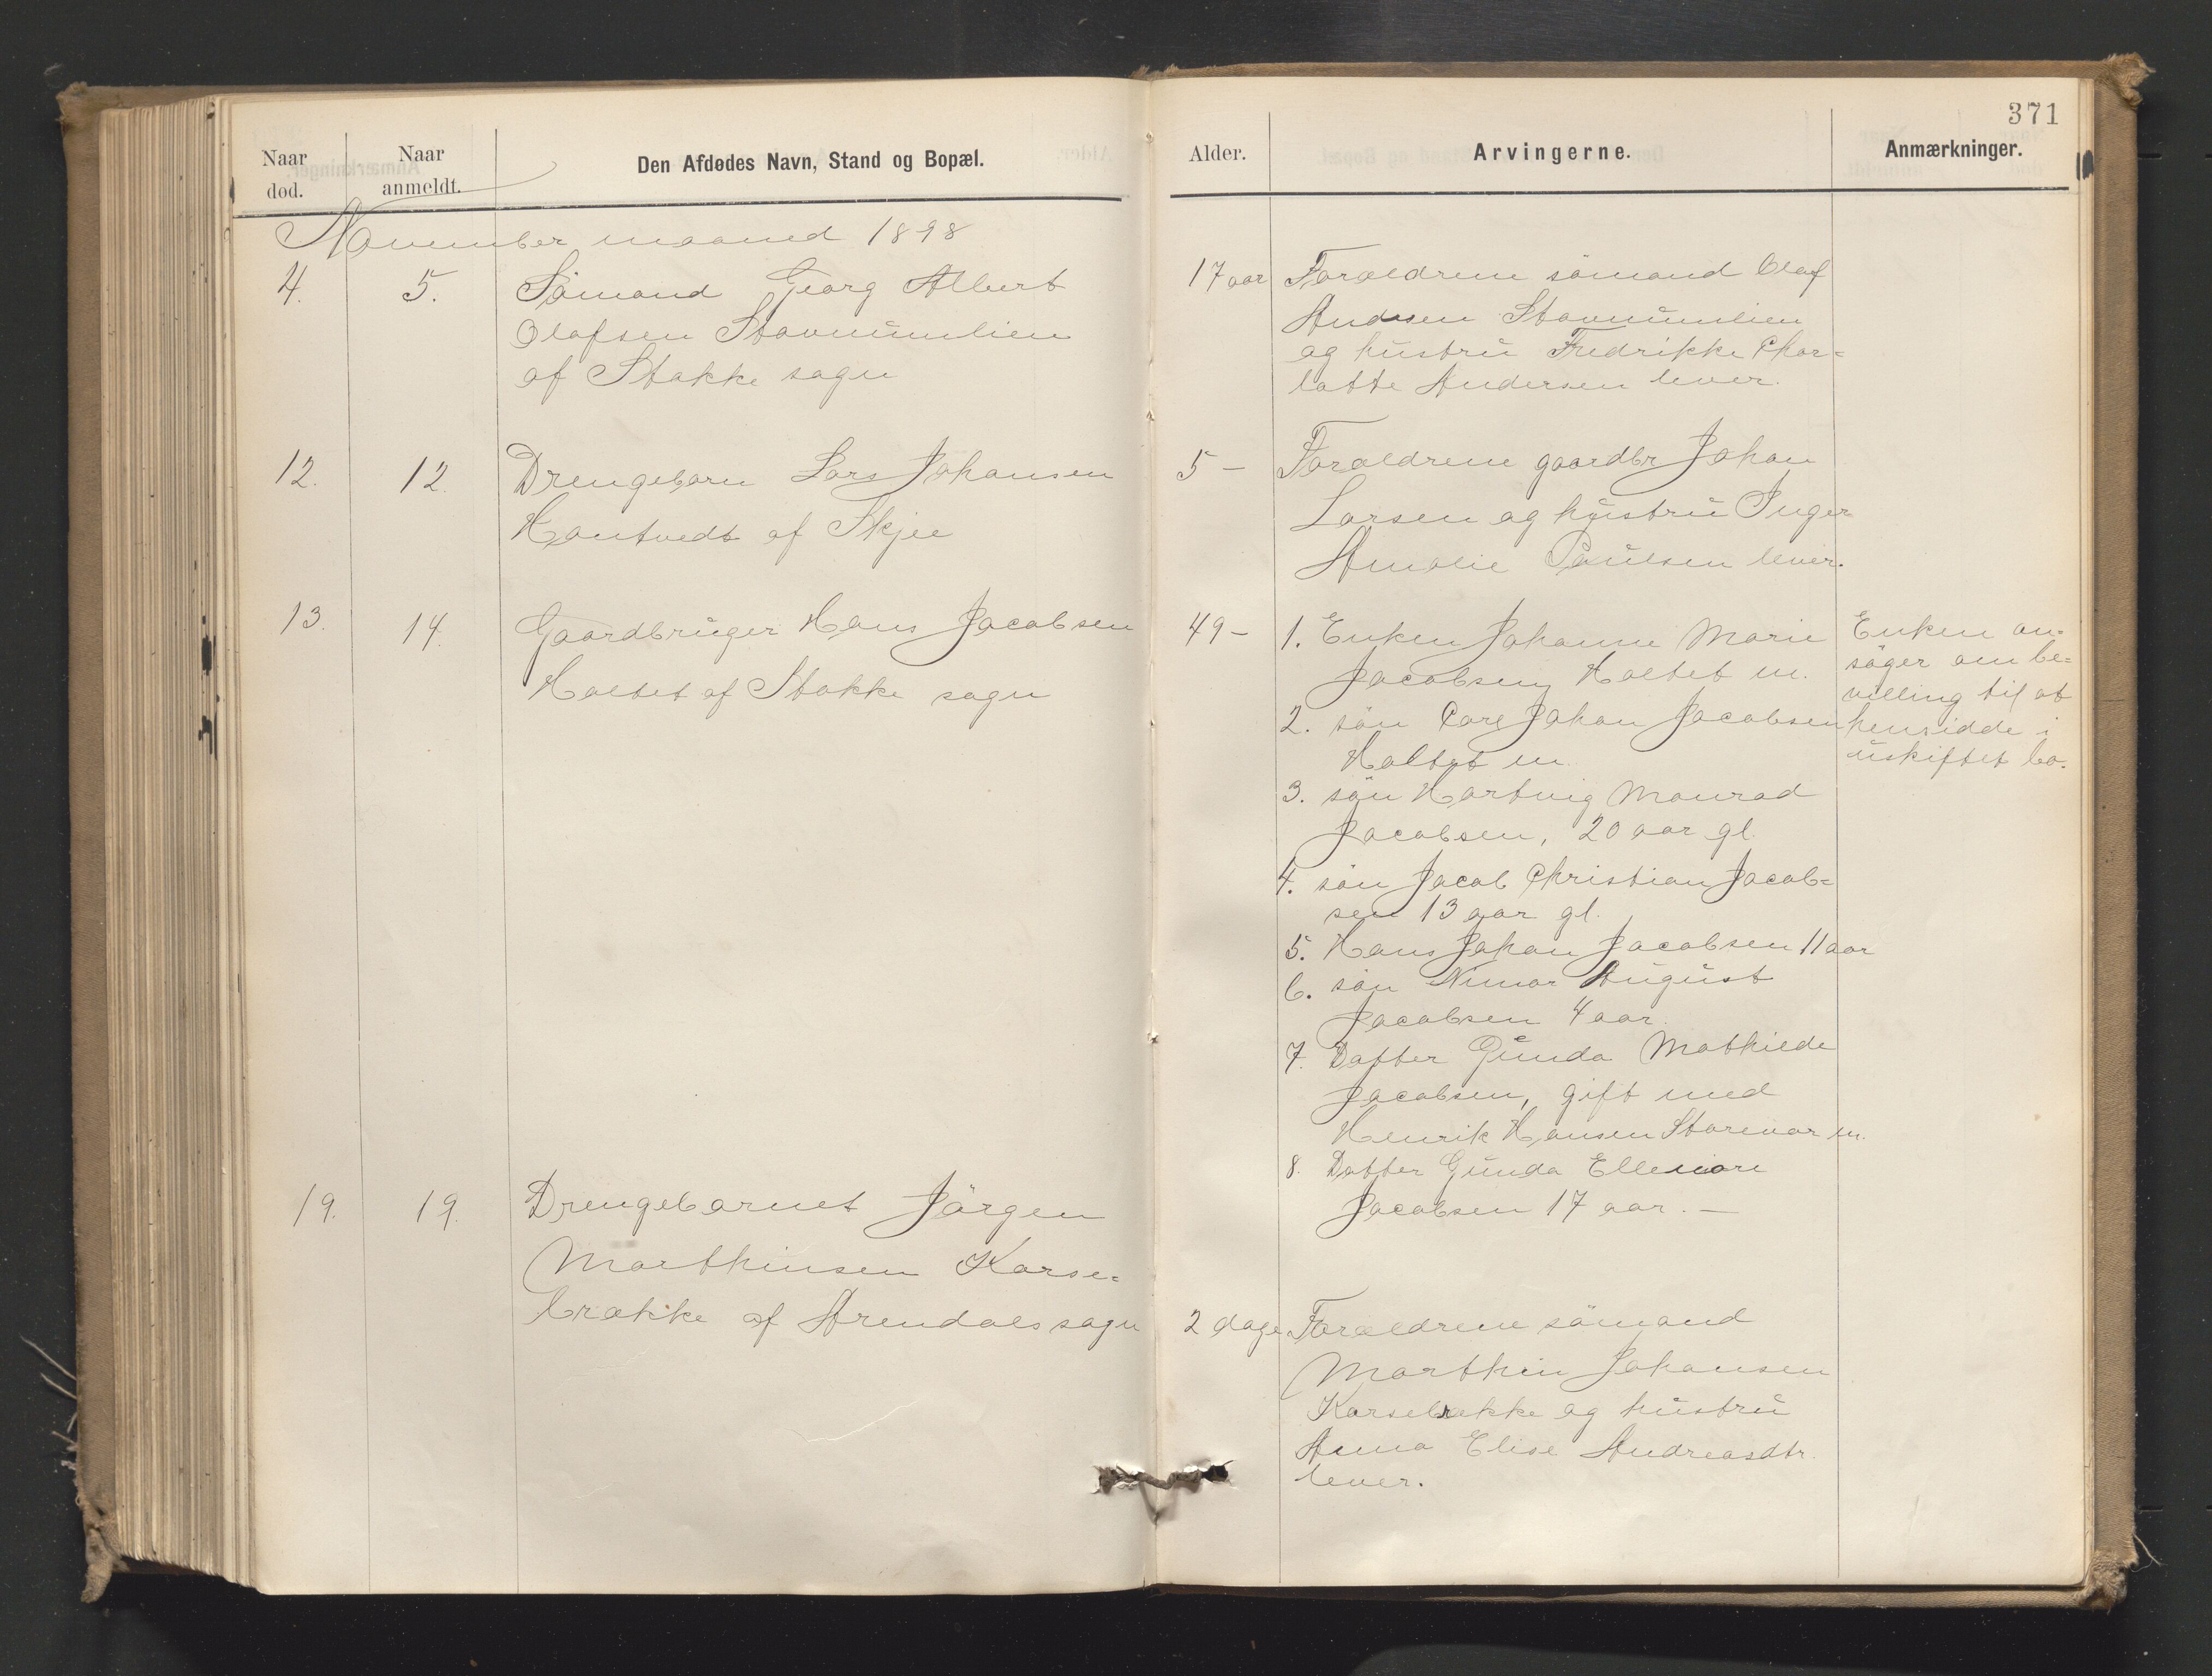 371
Naar død.
Naar anmeldt.
Den Afdødes Navn, Stand og Bopæl.
Alder.
Arvingerne.
Anmærkninger.
November maaned 1898
4.
5.
Sömand Georg Albert
Olafsen Stavnumlien
af Stokke sogn
17 aar
Forældrene sömand Olaf
Andersen Stavnumlien
og hustru Fredrikke Char=
lotte Andersen lever.
12.
12.
Drengebarn Lars Johansen
Hontvedt af Skjee
5 –
Forældrene gaardbr Johan
Larsen og hustru Inger
Amalie Paulsen lever.
13.
14.
Gaardbruger Hans Jacobsen
Holtet af Stokke sogn
49 –
1. Enken Johanne Marie
Jacobsen Holtet m.
2. sön Carl Johan Jacobsen
Holtet m.
3. sön Hartvig Monrad
Jacobsen, 20 aar gl.
4. sön Jacob Christian Jacob=
sen 13 aar gl.
5. Hans Johan Jacobsen 11 aar
6. sön August
Jacobsen 4 aar.
7. Datter Gunda Mathilde
Jacobsen, gift med
Henrik Hansen Storevar m.
8. Datter Gunda Ellenore
Jacobsen 17 aar. –
Enken an=
söger om be=
villing til at
hensidde i
uskiftet bo.
19.
19.
Drengebarnet Jörgen
Marthinsen Korse=
brække af Arendals sogn
2 dage
Forældrene sömand
Marthin Johansen
Korsebrække og hustru
Anna Elise Andreasdtr.
lever.